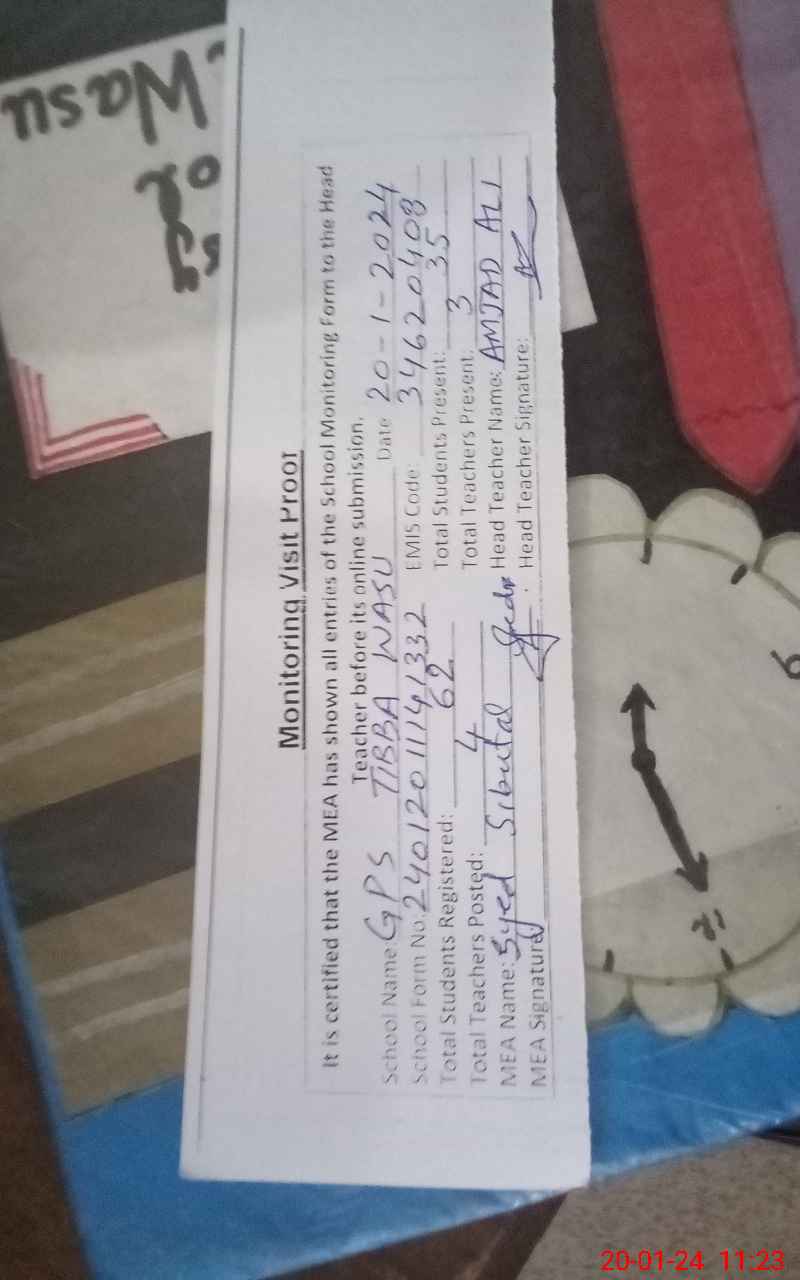 Monitoring Visit Proof
It is certified that the MEA has shown all entries of the School Monitoring Form to the Head
Teacher before its online submission.
School Name: GPS TIBBA WASU Date 20-1-2024
School Form No: 24012011141332 EMIS Code: 34620408
Total Students Registered: 62 Total Students Present: 35
Total Teachers Posted: 4 Total Teachers Present: 3
MEA Name: Syed Sibutal Head Teacher Name: AMJAD ALI
MEA Signature Head Teacher Signature:
Wasu
20-01-24 11:23